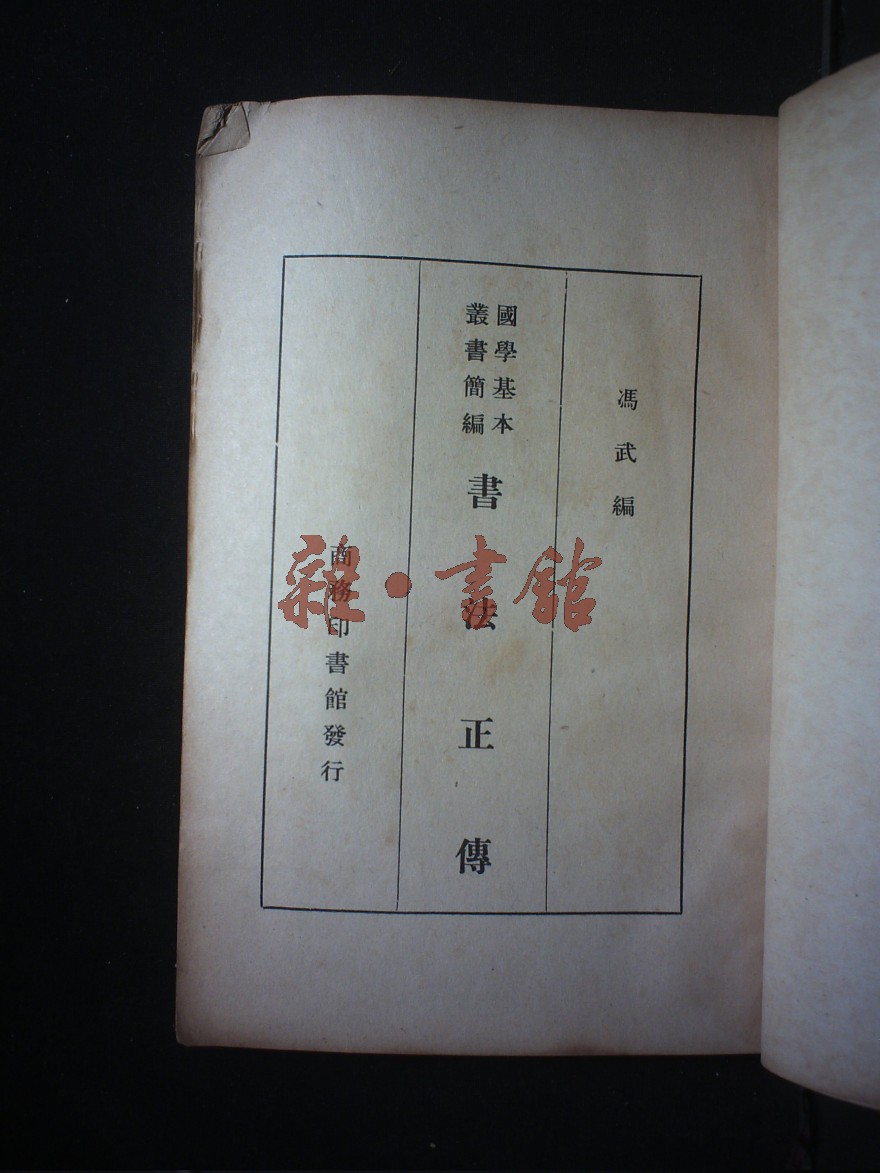 馮武編
國學基本
叢書簡編
書法正傳
商務印書館發行
雜·書館